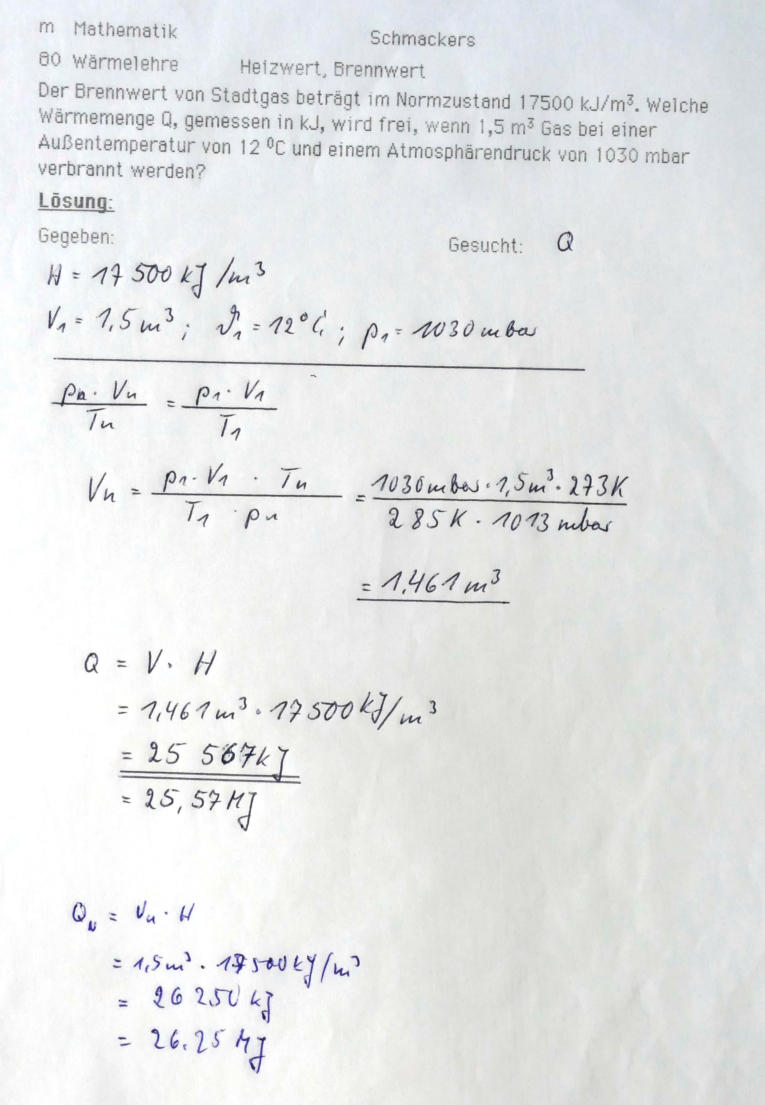 m Mathematik Schmackers
80 Wärmelehre Heizwert, Brennwert
Der Brennwert von Stadtgas beträgt im Normzustand 17500 kJ/m³. Welche
Wärmemenge Q, gemessen in kJ, wird frei, wenn 1,5 m³ Gas bei einer
Außentemperatur von 12 ⁰C und einem Atmosphärendruck von 1030 mbar
verbrannt werden?
Lösung:
Gegeben: Gesucht: Q
H = 17 500 kJ/m³
V₁ = 1,5 m³ ; ϑ₁ = 12°C ; p₁ = 1030 mbar
pₙ · Vₙ / Tₙ = p₁ · V₁ / T₁
Vₙ = p₁ · V₁ · Tₙ / T₁ · pₙ = 1030 mbar · 1,5 m³ · 273 K / 285 K · 1013 mbar
= 1,461 m³
Q = V · H
= 1,461 m³ · 17 500 kJ/m³
= 25 567 kJ
= 25,57 MJ
Q_N = Vₙ · H
= 1,5 m³ · 17 500 kJ/m³
= 26 250 kJ
= 26.25 MJ